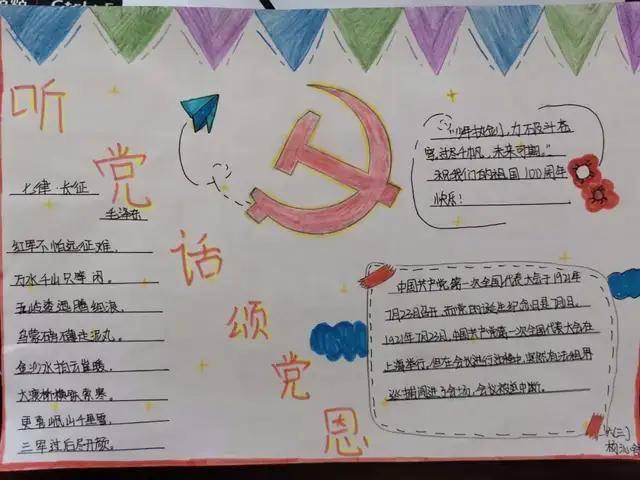 听党话颂党恩
七律·长征
毛泽东
红军不怕远征难,
万水千山只等闲。
五岭逶迤腾细浪,
乌蒙磅礴走泥丸。
金沙水拍云崖暖,
大渡桥横铁索寒。
更喜岷山千里雪,
三军过后尽开颜。
力不及斗志
穿过千帆,未来可期。”
祝我们的祖国100周年
快乐!
中国共产党第一次全国代表大会于1921年
7月23日召开,而党的诞生纪念日是7月1日。
1921年7月23日,中国共产党第一次全国代表大会在
上海举行,但在会议进行过程中,突然有法租界
巡捕闯进了会场,会议被迫中断。